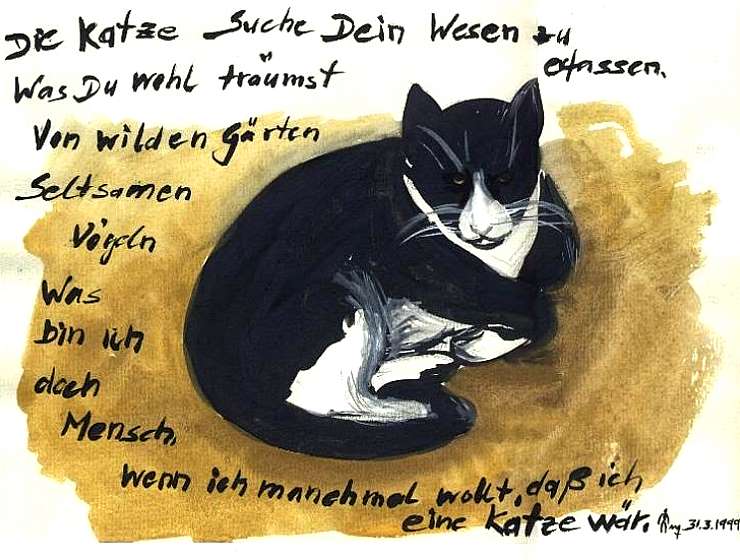 Die Katze Suche Dein Wesen zu
erfassen.
Was Du wohl träumst
Von wilden Gärten
Seltsamen
Vögeln
Was
bin ich
doch
Mensch,
wenn ich manchmal wollt, daß ich
eine Katze wär.
31.3.1999